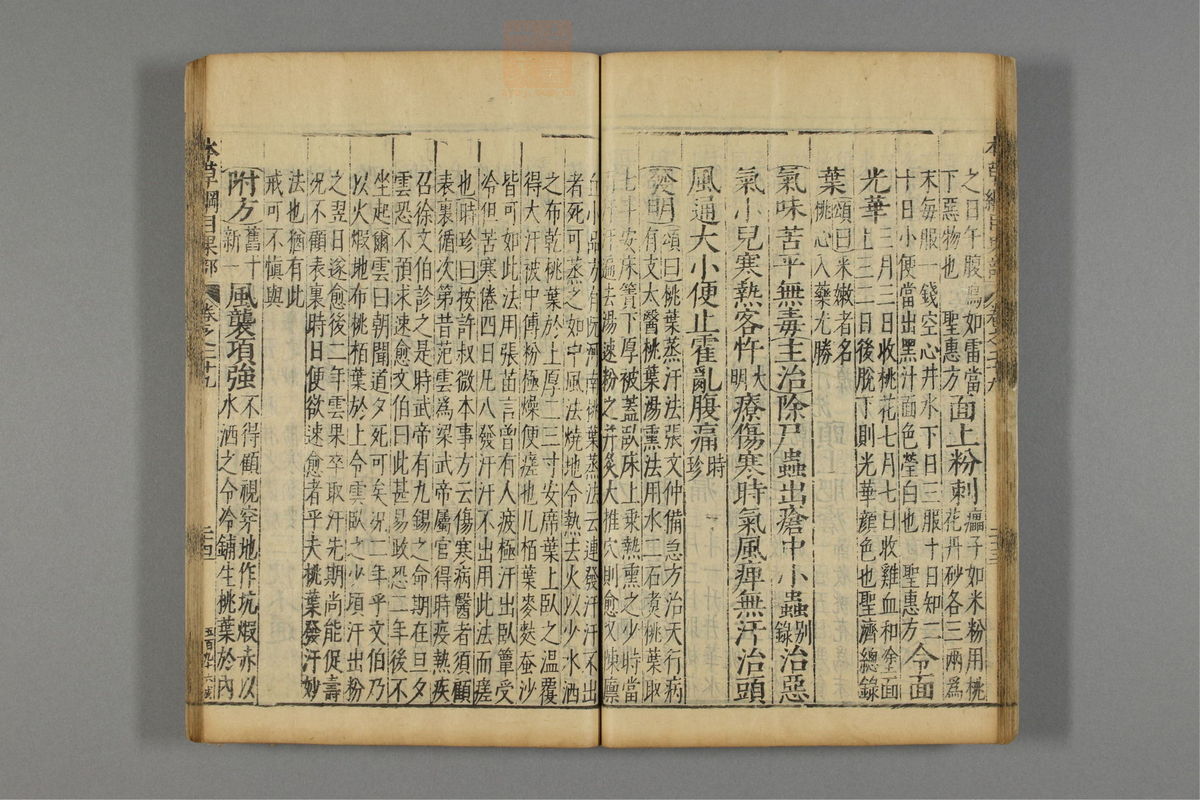 本草綱目果部 卷之二十九 二十三
之日午腹鳴如雷當
下惡物也 聖惠方
面上粉刺
㾴子如米粉用桃
花丹砂各三兩為
末每服一錢空心井水下日三服十日知二
十日小便當出黑汁面色瑩白也 聖惠方
令面
光華
三月三日收桃花七月七日收雞血和塗面
上三二日後脫下則光華顏色也聖濟總錄
葉
頌曰采嫩者名
桃心入藥尤勝
氣味苦平無毒主治除尸蟲出瘡中小蟲別錄治惡
氣小兒寒熱客忤大明療傷寒時氣風痺無汗治頭
風通大小便止霍亂腹痛時珍
發明
頌曰桃葉蒸汗法張文仲備急方治天行病
有支太醫桃葉湯熏法用水二石煑桃葉取
七斗安床簀下厚被蓋臥床上乘熱熏之少時當
雨汗汗遍去湯速粉之并灸大椎穴則愈又陳廩
丘小品方有阮河南桃葉蒸法云連發汗汗不出
者死可蒸之如中風法燒地令熱去火以少水洒
之布乾桃葉於上厚二三寸安席葉上臥之溫覆
得大汗被中傅粉極燥便瘥也凡栢葉麥麩蚕沙
皆可如此法用張苗言曾有人疲極汗出臥簟受
冷但苦寒倦四日凡八發汗汗不出用此法而瘥
也時珍曰按許叔微本事方云傷寒病醫者須顧
表裏循次第昔范雲為梁武帝屬官得時疫熱疾
召徐文伯診之是時武帝有九錫之命期在旦夕
雲恐不預求速愈文伯曰此甚易政恐二年後不
坐起爾雲曰朝聞道夕死可矣況二年乎文伯乃
以火煅地布桃栢葉於上令雲臥之少頃汗出粉
之翌日遂愈後二年雲果卒取汗先期尚能促壽
況不顧表裏時日便欲速愈者乎夫桃葉發汗妙
法也猶有此
戒可不慎與
附方
舊十
新一
風襲項強
不得顧視穿地作坑煅赤以
水洒之令冷鋪生桃葉於內
本草綱目果部 卷之二十九 二十四